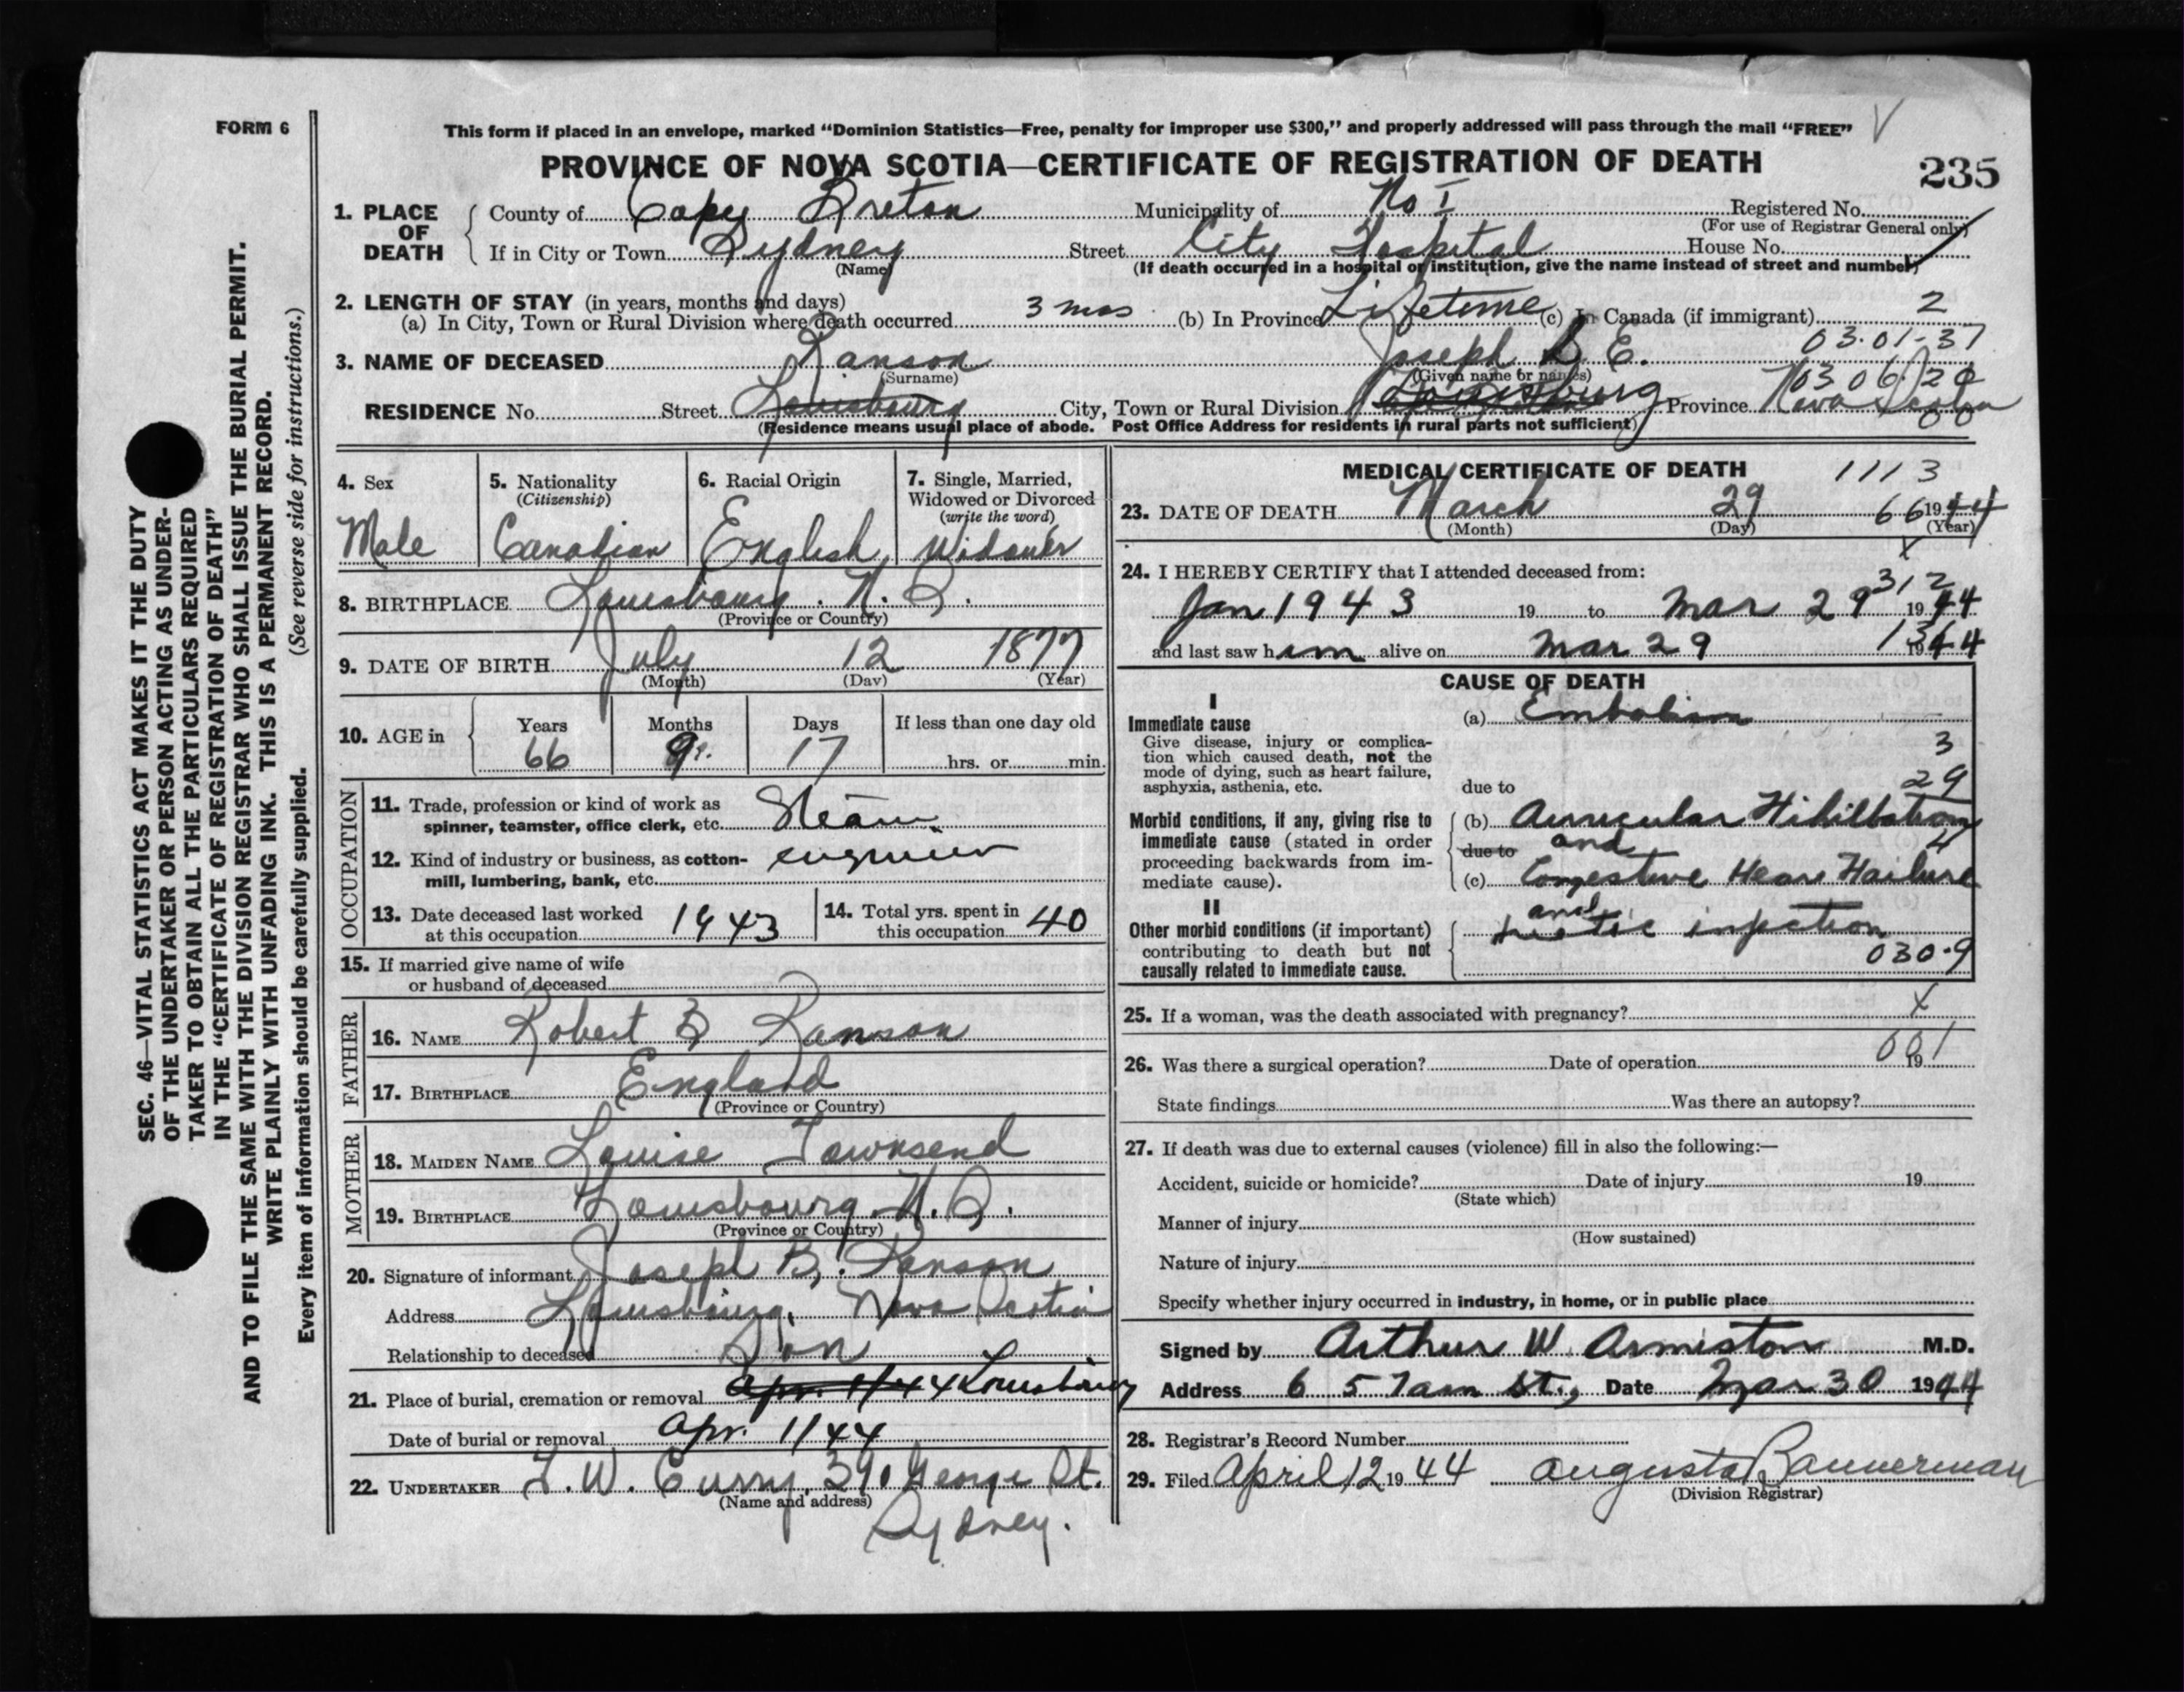 FORM 6
This form if placed in an envelope, marked “Dominion Statistics—Free, penalty for improper use $300,” and properly addressed will pass through the mail “FREE”
PROVINCE OF NOVA SCOTIA—CERTIFICATE OF REGISTRATION OF DEATH
235
1. PLACE OF DEATH County of Cape Breton Municipality of No I Registered No.
(For use of Registrar General only)
If in City or Town Sydney Street City Hospital House No.
(Name) (If death occurred in a hospital or institution, give the name instead of street and number)
2. LENGTH OF STAY (in years, months and days)
(a) In City, Town or Rural Division where death occurred 3 mos (b) In Province Lifetime (c) In Canada (if immigrant) 2
03.01-37
3. NAME OF DECEASED Ranson Joseph E.
(Surname) (Given name or names)
03 06 20
RESIDENCE No. Street Louisbourg City, Town or Rural Division Louisbourg Province Nova Scotia
00
(Residence means usual place of abode. Post Office Address for residents in rural parts not sufficient)
4. Sex
Male
5. Nationality
(Citizenship)
Canadian
6. Racial Origin
English
7. Single, Married,
Widowed or Divorced
(write the word)
Widower
8. BIRTHPLACE Louisbourg. N. S.
(Province or Country)
9. DATE OF BIRTH July 12 1877
(Month) (Day) (Year)
10. AGE in Years Months Days If less than one day old
66 17 hrs. or min.
OCCUPATION
11. Trade, profession or kind of work as
spinner, teamster, office clerk, etc. Steam
12. Kind of industry or business, as cotton-
mill, lumbering, bank, etc. engineer
13. Date deceased last worked
at this occupation 1943
14. Total yrs. spent in
this occupation 40
15. If married give name of wife
or husband of deceased
FATHER
16. NAME Robert B Ranson
17. BIRTHPLACE England
(Province or Country)
MOTHER
18. MAIDEN NAME Louise Townsend
19. BIRTHPLACE Louisbourg N.S.
(Province or Country)
20. Signature of informant Joseph B. Ranson
Address Louisbourg. Nova Scotia
Relationship to deceased Son
21. Place of burial, cremation or removal Apr. 1/44 Louisbourg
Date of burial or removal Apr. 1/44
22. UNDERTAKER F. W. Curry, 390 George St.
(Name and address)
Sydney.
MEDICAL CERTIFICATE OF DEATH
1113
23. DATE OF DEATH March 29 66 1944
(Month) (Day) (Year)
x
24. I HEREBY CERTIFY that I attended deceased from:
312
Jan 1943 19 to Mar 29 1944
and last saw him alive on Mar 29 1944
CAUSE OF DEATH
I
Immediate cause
Give disease, injury or complica-
tion which caused death, not the
mode of dying, such as heart failure,
asphyxia, asthenia, etc.
(a) Embolism
3
29
due to
Morbid conditions, if any, giving rise to
immediate cause (stated in order
proceeding backwards from im-
mediate cause).
(b) Auricular Fibillation
due to and 4
(c) Congestive Hear Failure
II
Other morbid conditions (if important)
contributing to death but not
causally related to immediate cause.
and
luetic infection
030.9
25. If a woman, was the death associated with pregnancy? x
001
26. Was there a surgical operation? Date of operation 19
State findings Was there an autopsy?
27. If death was due to external causes (violence) fill in also the following:—
Accident, suicide or homicide? Date of injury 19
(State which)
Manner of injury
(How sustained)
Nature of injury
Specify whether injury occurred in industry, in home, or in public place
Signed by Arthur W Ormiston M.D.
Address St., Date Mar 30 1944
28. Registrar's Record Number
29. Filed April 12 1944 Augusta Bannerman
(Division Registrar)
SEC. 46—VITAL STATISTICS ACT MAKES IT THE DUTY
OF THE UNDERTAKER OR PERSON ACTING AS UNDER-
TAKER TO OBTAIN ALL THE PARTICULARS REQUIRED
IN THE “CERTIFICATE OF REGISTRATION OF DEATH”
AND TO FILE THE SAME WITH THE DIVISION REGISTRAR WHO SHALL ISSUE THE BURIAL PERMIT.
WRITE PLAINLY WITH UNFADING INK. THIS IS A PERMANENT RECORD.
Every item of information should be carefully supplied. (See reverse side for instructions.)